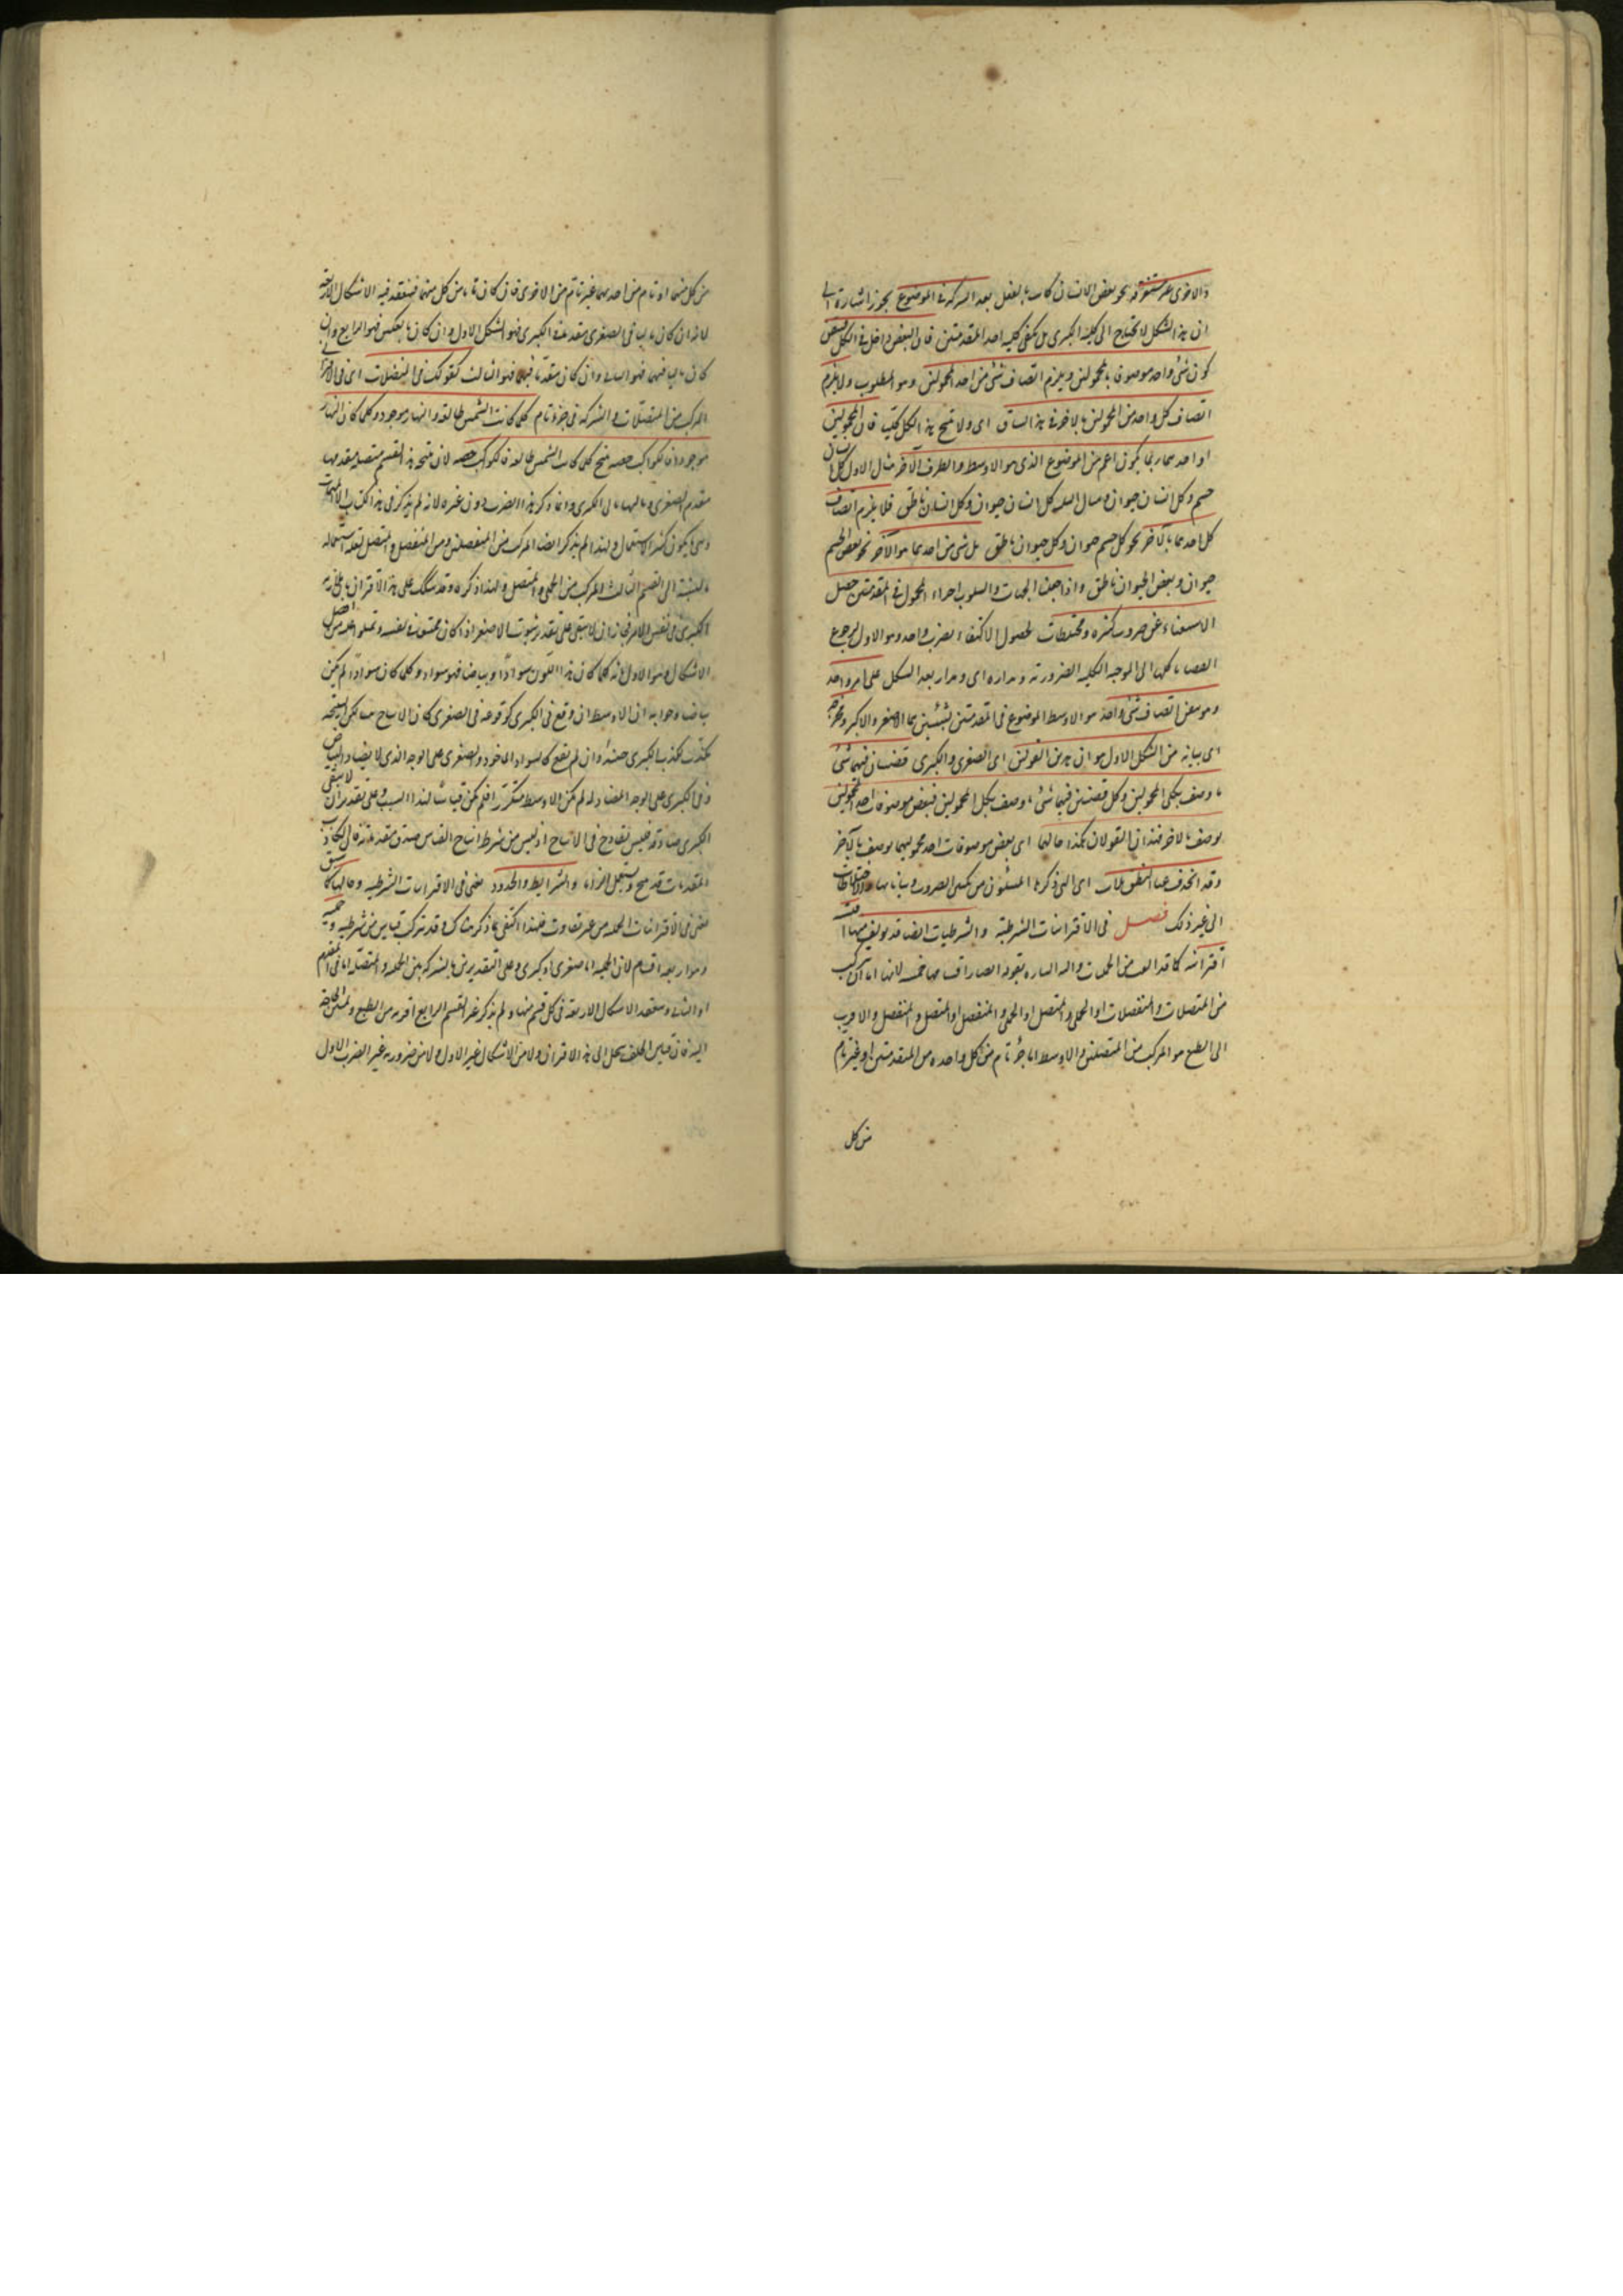 والاخرى غير مستغرقة نحو بعض الانسان كاتب بالفعل بعد الشركة في الموضوع يجوز اشارة الى
ان هذا الشكل لا يحتاج الى كلية الكبرى بل يكفى كلية احد المقدمتين فان البعض داخل في الكل فيتعين
كون شئ واحد موصوف بالمحمولين ويلزم اتصاف شئ من احد المحمولين وهو المطلوب ولا يلزم
اتصاف كل واحد من المحمولين بالاخر في هذا السياق اى ولا ينتج هذا الشكل كلية فان المحمولين
او احدهما ربما يكون اعم من الموضوع الذى هو الاوسط والطرف الآخر مثال الاول كل انسان
جسم وكل انسان حيوان ومثال الثانى كل انسان حيوان وكل انسان ناطق فلا يلزم اتصاف
كل احدهما بالآخر نحو كل جسم حيوان وكل حيوان ناطق بل شئ من احدهما هو الآخر نحو بعض الجسم
حيوان وبعض الحيوان ناطق واذا جعلنا الجهات والسلوب اجزاء المحمول في المقدمتين حصل
الاستغناء عن ضروب كثيرة ومختلطات لحصول الاكتفاء بضرب واحد وهو الاول لرجوع
القضايا كلها الى الموجبة الكلية الضرورية ومداره اى ومدار هذا الشكل على امر واحد
وهو تيقن اتصاف شئ واحد هو الاوسط الموضوع في المقدمتين بشيئين هما الاصغر والاكبر ومخرجه
اى بيانه من الشكل الاول هو ان هذين القولين اى الصغرى والكبرى قضيتان فيهما شئ
ما وصف بكلى المحمولين وكل قضيتين فيهما شئ ما وصف بكلى المحمولين فبعض موصوفات احد المحمولين
يوصف بالاخر فهذان القولان هكذا حالهما اى بعض موصوفات احد محموليهما يوصف بالآخر
وقد انحذف عنا التطويلات اى التى ذكرها المشاؤن من تكثير الضروب وبياناتها والاختلاطات
الى غير ذلك فصل في الاقترانيات الشرطية والشرطيات ايضا قد يؤلف منها اقيسة
اقترانية كما قد الف من الحمليات واليه اشار بقوله ايضا واقسامها خمسة لانها اما ان يتركب
من المتصلات والمنفصلات او الحملى والمتصل او الحملى والمنفصل او المتصل والمنفصل والاقرب
الى الطبع هو المركب من المتصلتين والاوسط اما جزء تام من كل واحدة من المقدمتين او غير تام
من كل
من كل منهما او تام من احدهما غير تام من الاخرى فان كان تاما من كل منهما فينعقد فيه الاشكال الاربعة
لانه ان كان تاليا في الصغرى مقدما في الكبرى فهو الشكل الاول وان كان بالعكس فهو الرابع وان
كان تاليا فيهما فهو الثانى وان كان مقدما فيهما فهو الثالث كقولك في المتصلات اى في الاقترانى
المركب من المتصلات والشركة في جزء تام كلما كانت الشمس طالعة فالنهار موجود وكلما كان النهار
موجودا فالكواكب خفية ينتج كلما كانت الشمس طالعة فالكواكب خفية لان نتيجة هذا القسم متصلة مقدمها
مقدم الصغرى وتاليها تالى الكبرى وانما ذكر هذا الضرب دون غيره لانه لم يذكر في هذا الكتاب الا المهمات
وما يكون كثير الاستعمال ولهذا لم يذكر ايضا المركب من المنفصلتين ومن المنفصل والمتصل لقلة استعماله
بالنسبة الى القسم الثالث والمركب من الحملى والمتصل ولهذا ذكره وقد يشكك على هذا الاقترانى بان
الكبرى في نفس الامر فجاز ان لا يبقى على تقدير ثبوت الاصغر اذا كان ممتنعا في نفسه
الاشكال وهو الاول بانه كلما كان هذا اللون سوادا وبياضا فهو سواد وكلما كان سوادا لم يكن
بياضا وجوابه ان الاوسط ان وقع في الكبرى كوقوعه في الصغرى كان الانتاج
تكذب لكذب الكبرى حينئذ وان لم يقع كالسواد المأخوذ في الصغرى على الوجه الذى لا يضاد البياض
وفي الكبرى على الوجه المضاد له لم يكن الاوسط متكررا فلم يكن قياسا لهذا السبب وعلى تقدير ان لا يبقى
الكبرى صادقة فليس بقادح في الانتاج اذ ليس من شرط انتاج القياس صدق مقدماته فان الكاذب
المقدمات قد ينتج ويستعمل الزاما والشرايط والحدود يعنى في الاقترانيات الشرطية وحالها كما سبق
يعنى في الاقترانيات الحملية من غير تفاوت فلهذا اكتفى بما ذكر هناك وقد يتركب قياس من شرطية وحملية
وهو اربعة اقسام لان الحملية اما صغرى او كبرى وعلى التقديرين فالشركة بين الحملية والمتصلة اما في المقدم
او التالى وينعقد الاشكال الاربعة في كل قسم منها ولم يذكر غير القسم الرابع لقربه من الطبع ولمس الحاجة
اليه فان قياس الخلف ينحل الى هذا الاقترانى ولا من الاشكال غير الاول ولا من ضروبه غير الضرب الاول